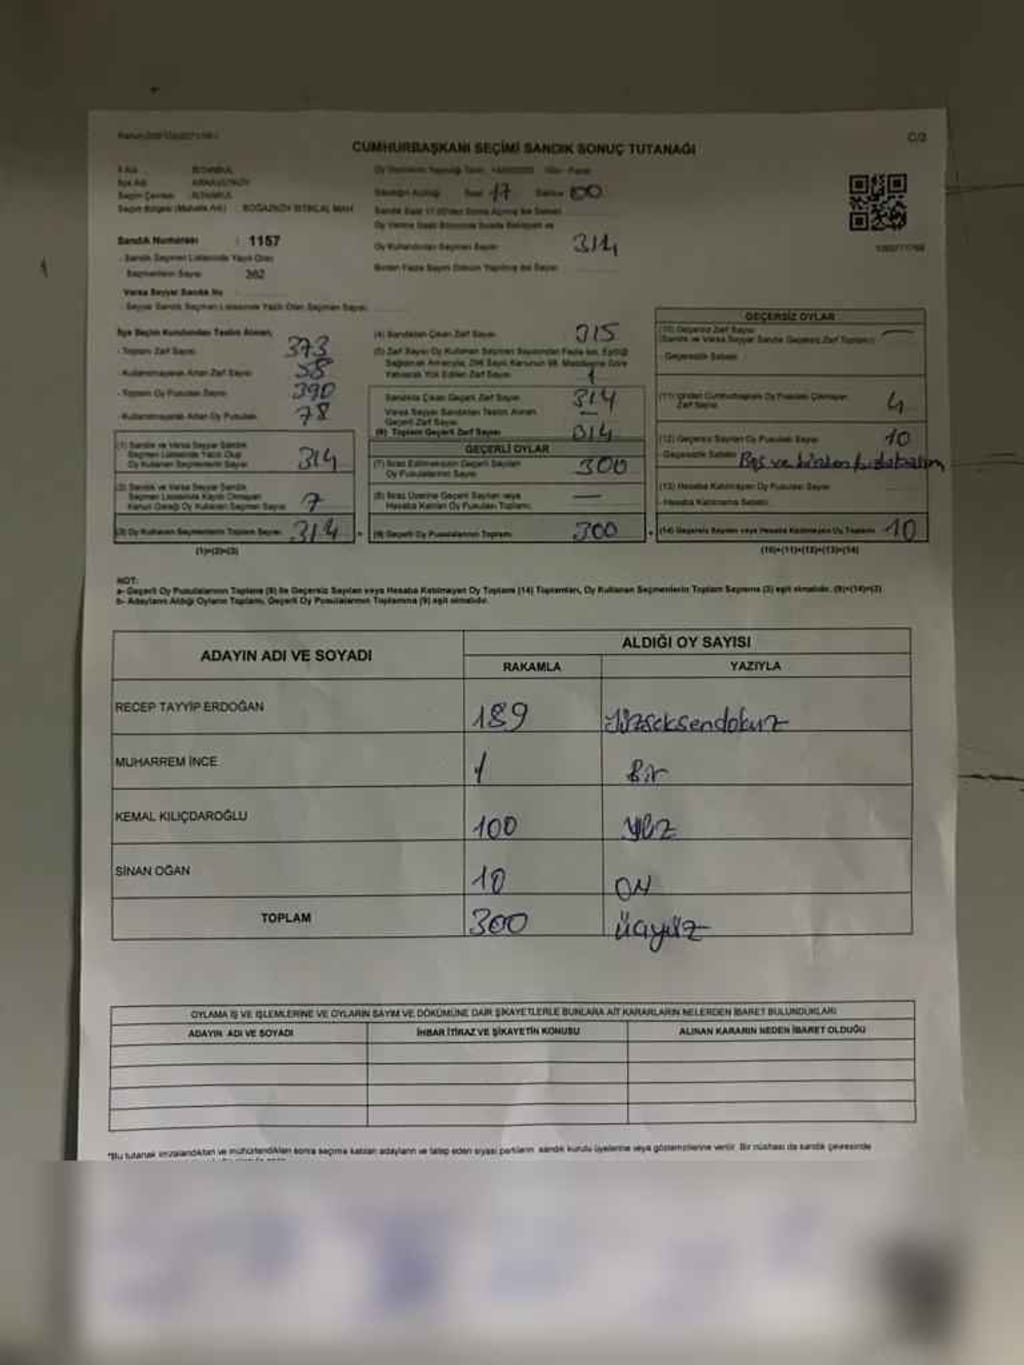 C/3
CUMHURBAŞKANI SEÇİMİ SANDIK SONUÇ TUTANAĞI
İl Adı : İSTANBUL
İlçe Adı : ARNAVUTKÖY
Seçim Çevresi : İSTANBUL
Seçim Bölgesi (Mahalle Adı) : BOĞAZKÖY İSTİKLAL MAH.
Saat 17 00
Sandık Numarası : 1157
- Sandık Seçmen Listesinde Yazılı Olan
Seçmenlerin Sayısı 362
Oy Kullandıran Seçmen Sayısı 314
Varsa Seyyar Sandık No
- Seyyar Sandık Seçmen Listesinde Yazılı Olan Seçmen Sayısı
İlçe Seçim Kurulundan Teslim Alınan;
- Toplam Zarf Sayısı 373
- Kullanılmayarak Artan Zarf Sayısı 58
- Toplam Oy Pusulası Sayısı 390
- Kullanılmayarak Artan Oy Pusulası 78
(1) Sandık ve Varsa Seyyar Sandık
Seçmen Listesinde Yazılı Olup
Oy Kullanan Seçmenlerin Sayısı 314
(2) Sandık ve Varsa Seyyar Sandık
Seçmen Listesinde Kayıtlı Olmayan
Kanun Gereği Oy Kullanan Seçmen Sayısı
(3) Oy Kullanan Seçmenlerin Toplam Sayısı 314
(1)+(2)=(3)
(4) Sandıktan Çıkan Zarf Sayısı 315
(5) Zarf Sayısı Oy Kullanan Seçmen Sayısından Fazla ise, Eşitliği
Sağlamak Amacıyla, 298 Sayılı Kanunun 98. Maddesine Göre
Yakılarak Yok Edilen Zarf Sayısı 1
Sandıkta Çıkan Geçerli Zarf Sayısı 314
Varsa Seyyar Sandıktan Teslim Alınan
Geçerli Zarf Sayısı —
(6) Toplam Geçerli Zarf Sayısı 314
GEÇERLİ OYLAR
(7) İtiraz Edilmeksizin Geçerli Sayılan
Oy Pusulalarının Sayısı 300
(8) İtiraz Üzerine Geçerli Sayılan veya
Hesaba Katılan Oy Pusulası Toplamı —
(9) Geçerli Oy Pusulalarının Toplamı 300
GEÇERSİZ OYLAR
(10) Geçersiz Zarf Sayısı
(Sandık ve Varsa Seyyar Sandık Geçersiz Zarf Toplamı) —
- Geçersizlik Sebebi
(11) İçinden Cumhurbaşkanı Oy Pusulası Çıkmayan
Zarf Sayısı 4
(12) Geçersiz Sayılan Oy Pusulası Sayısı 10
- Geçersizlik Sebebi Boş ve birden fazla
(13) Hesaba Katılmayan Oy Pusulası Sayısı
- Hesaba Katılmama Sebebi
(14) Geçersiz Sayılan veya Hesaba Katılmayan Oy Toplamı 10
(10)+(11)+(12)+(13)=(14)
NOT:
a- Geçerli Oy Pusulalarının Toplamı (9) ile Geçersiz Sayılan veya Hesaba Katılmayan Oy Toplamı (14) Toplamları, Oy Kullanan Seçmenlerin Toplam Sayısına (3) eşit olmalıdır. (9)+(14)=(3)
b- Adayların Aldığı Oyların Toplamı, Geçerli Oy Pusulalarının Toplamına (9) eşit olmalıdır.
ADAYIN ADI VE SOYADI
ALDIĞI OY SAYISI
RAKAMLA YAZIYLA
RECEP TAYYİP ERDOĞAN 189 Yüzseksendokuz
MUHARREM İNCE 1 Bir
KEMAL KILIÇDAROĞLU 100 Yüz
SİNAN OĞAN 10 ON
TOPLAM 300 Üçyüz
OYLAMA İŞ VE İŞLEMLERİNE VE OYLARIN SAYIM VE DÖKÜMÜNE DAİR ŞİKAYETLERLE BUNLARA AİT KARARLARIN NELERDEN İBARET BULUNDUKLARI
ADAYIN ADI VE SOYADI İHBAR İTİRAZ VE ŞİKAYETİN KONUSU ALINAN KARARIN NEDEN İBARET OLDUĞU
*Bu tutanak imzalandıktan ve mühürlendikten sonra seçime katılan adayların ve talep eden siyasi partilerin sandık kurulu üyelerine veya gözlemcilerine verilir. Bir nüshası da sandık çevresinde